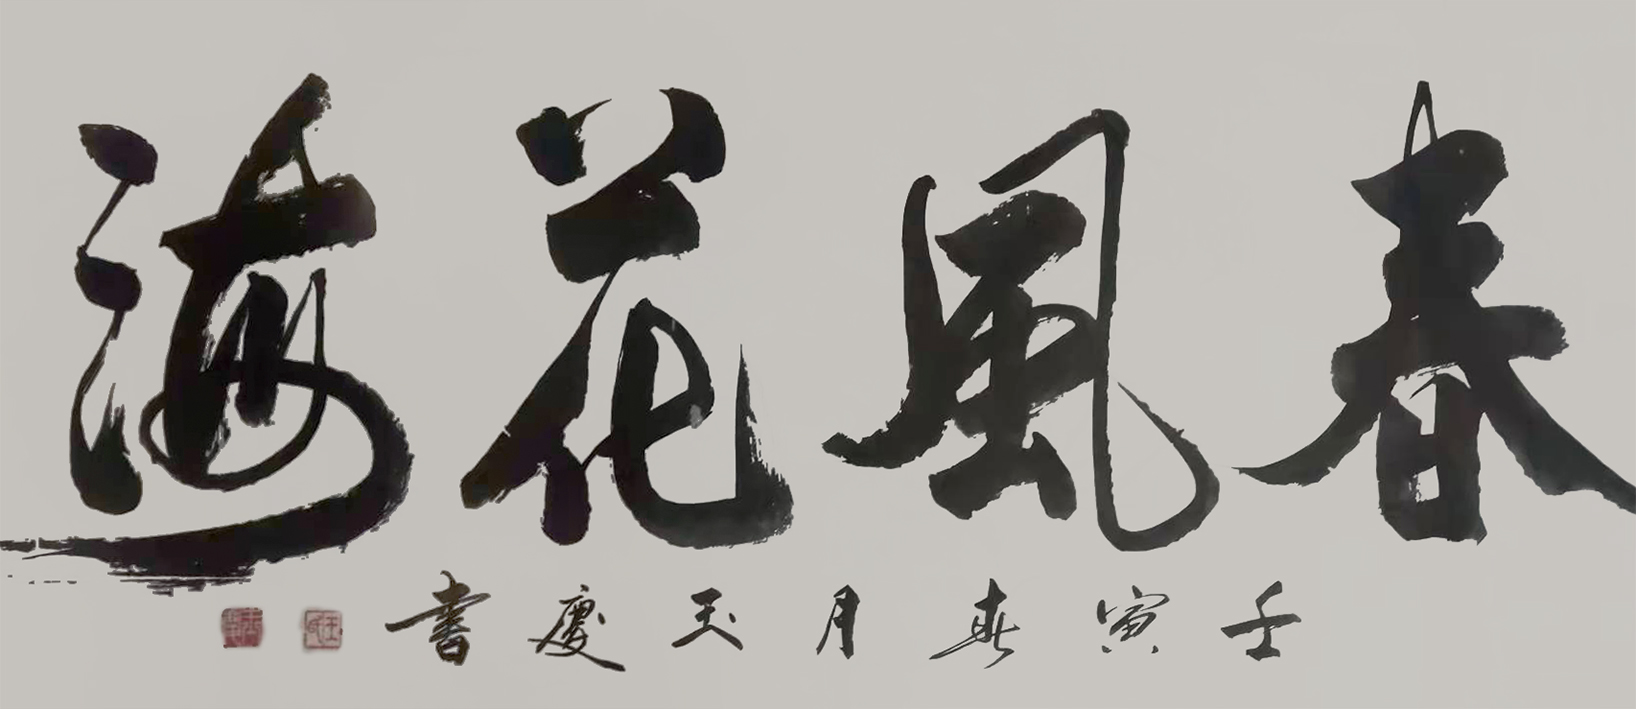 春風花海
壬寅春月玉慶書